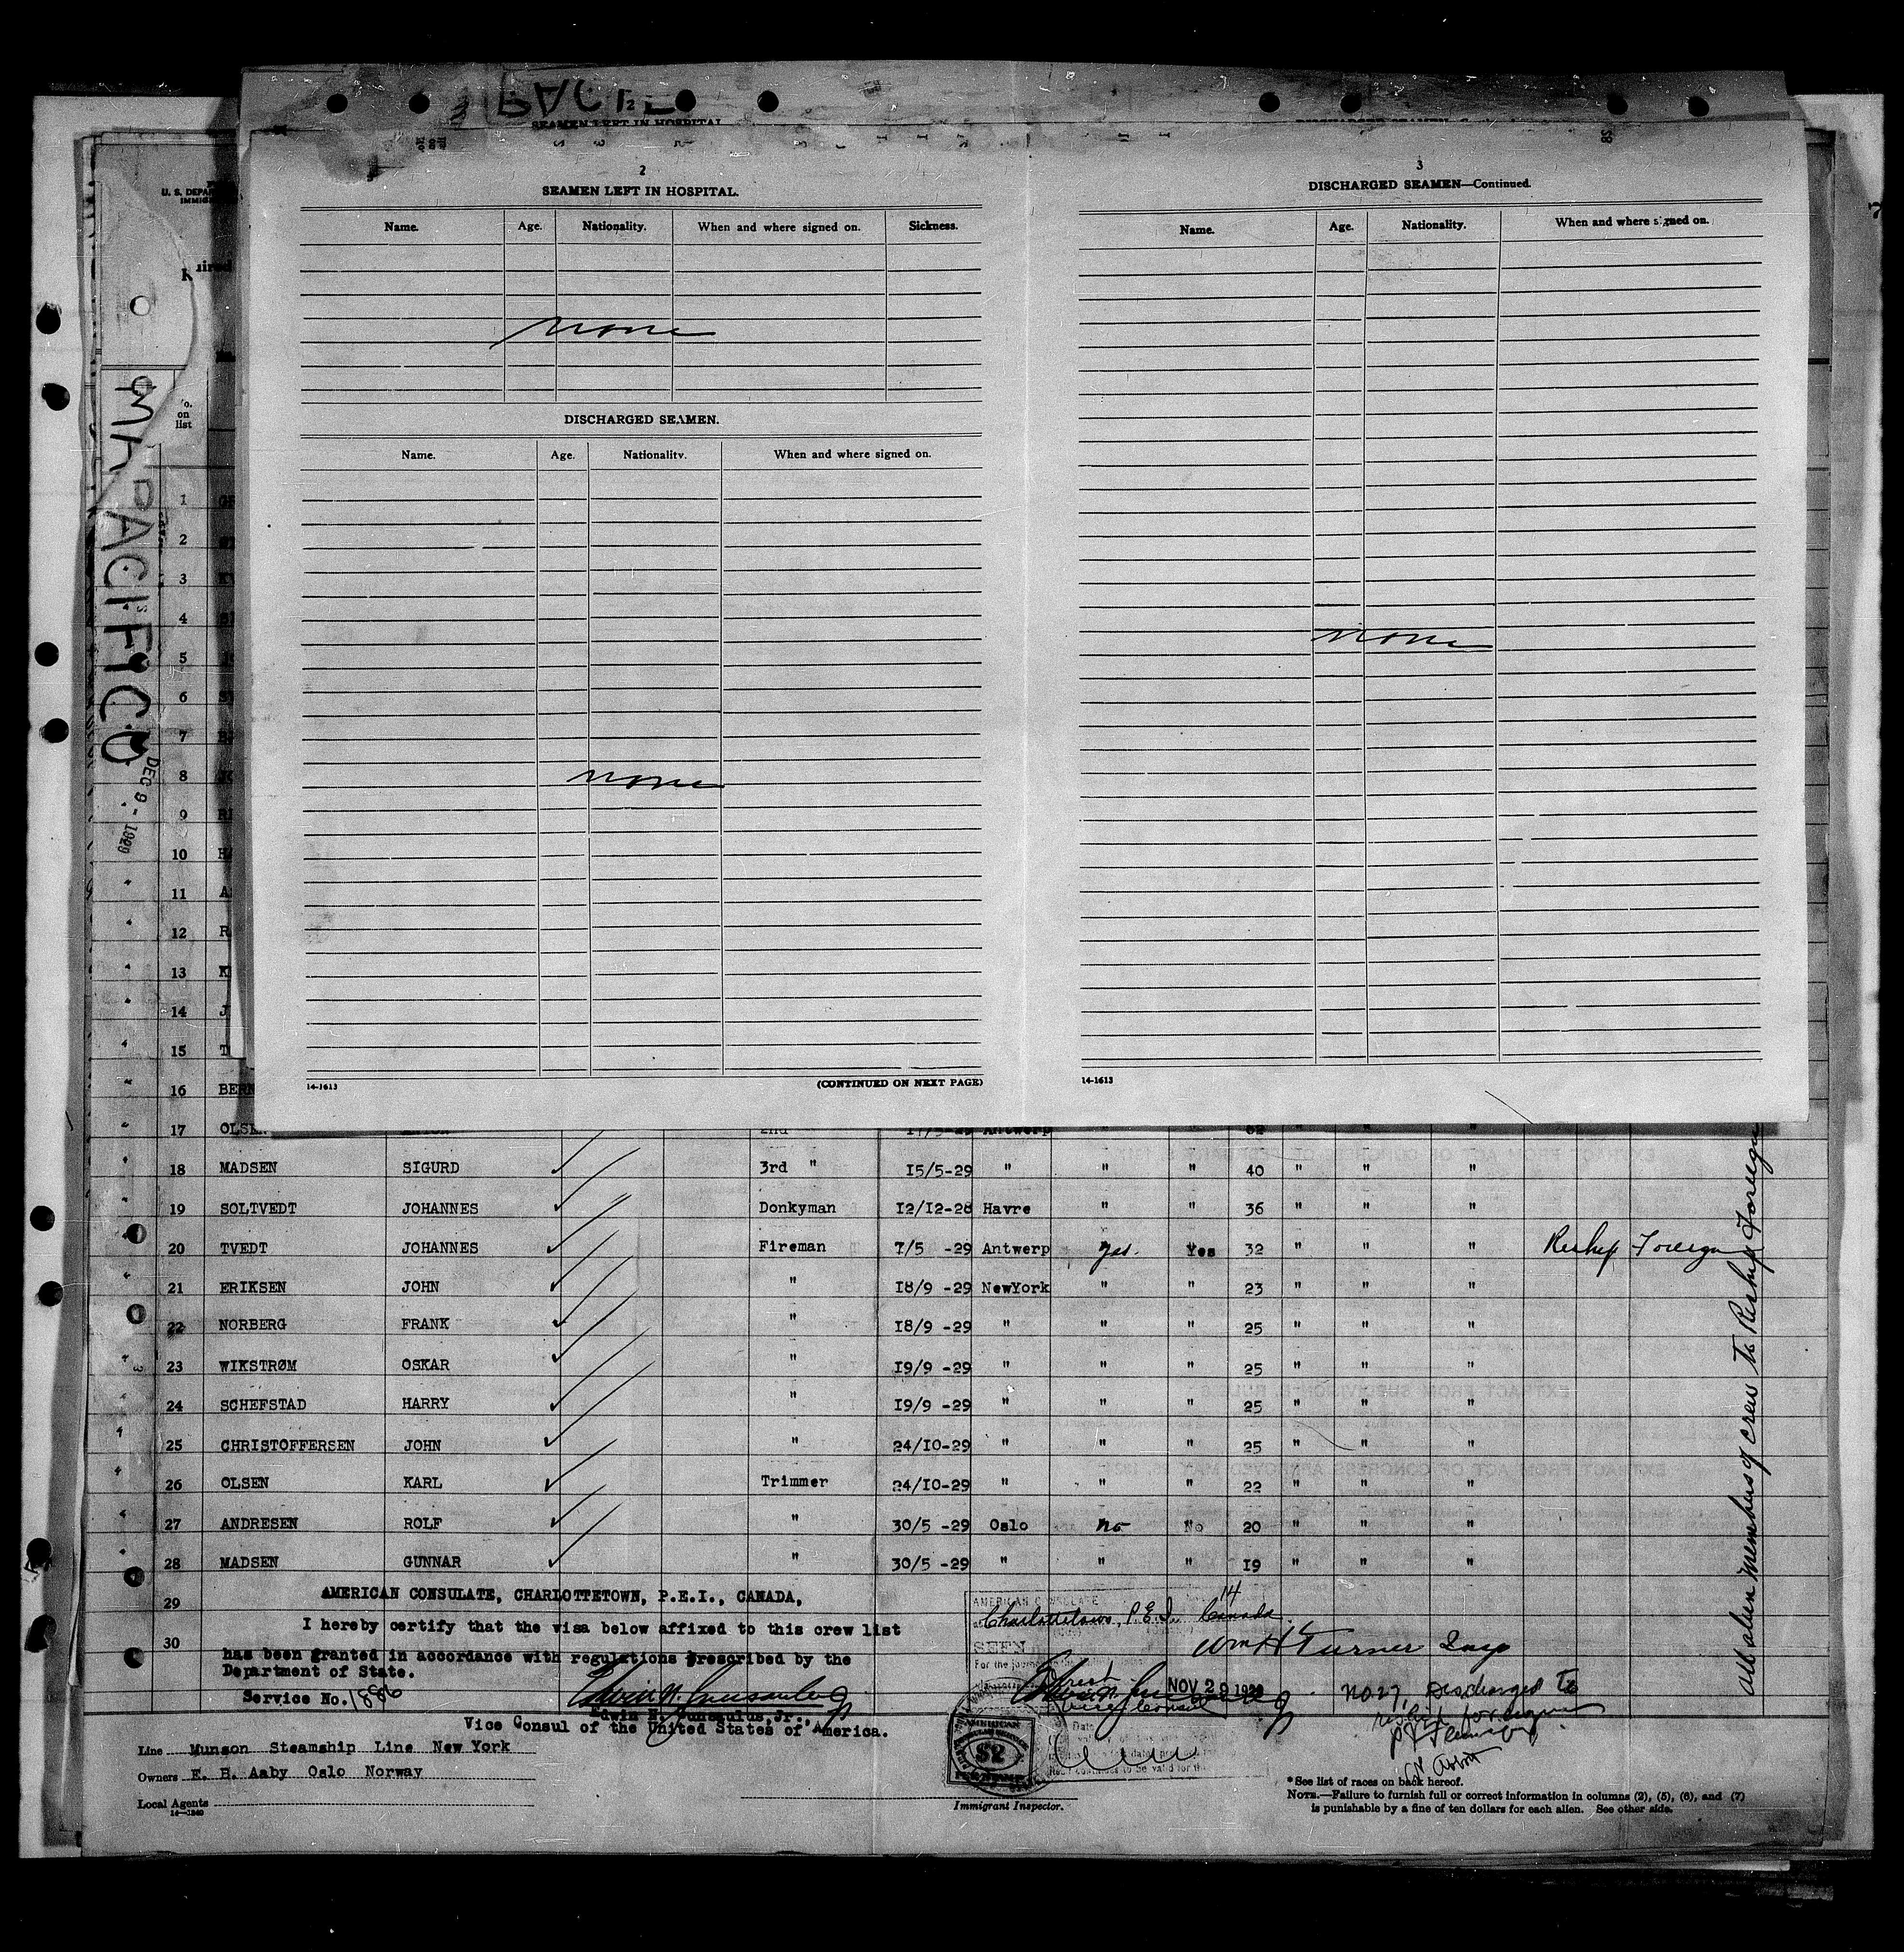 2
SEAMEN LEFT IN HOSPITAL.
Name. Age. Nationality. When and where signed on. Sickness.
none
DISCHARGED SEAMEN.
Name. Age. Nationality. When and where signed on.
none
14-1613 (CONTINUED ON NEXT PAGE)
3
DISCHARGED SEAMEN—Continued.
Name. Age. Nationality. When and where signed on.
none
14-1613
PACIFICO
DEC 9 - 1929
on
list
1
2
3
4
5
6
7
8
9
10
11
12
13
14
15
16 BERN
17 OLSEN 2nd 17/5-29 Antwerp
18 MADSEN SIGURD 3rd " 15/5-29 " " " 40 " " "
19 SOLTVEDT JOHANNES Donkyman 12/12-28 Havre " " 36 " " "
20 TVEDT JOHANNES Fireman 7/5 -29 Antwerp Yes. Yes 32 " " " Reship Foreign
21 ERIKSEN JOHN " 18/9 -29 NewYork " " 23 " " "
22 NORBERG FRANK " 18/9 -29 " " " 25 " " "
23 WIKSTRØM OSKAR " 19/9 -29 " " " 25 " " "
24 SCHEFSTAD HARRY " 19/9 -29 " " " 25 " " "
25 CHRISTOFFERSEN JOHN " 24/10-29 " " " 25 " " "
26 OLSEN KARL Trimmer 24/10-29 " " " 22 " " "
27 ANDRESEN ROLF " 30/5 -29 Oslo no No 20 " " "
28 MADSEN GUNNAR " 30/5 -29 " " " 19 " " "
29
30
All alien members of crew to Reship Foreign
AMERICAN CONSULATE, CHARLOTTETOWN, P.E.I., CANADA,
I hereby certify that the visa below affixed to this crew list
has been granted in accordance with regulations prescribed by the
Department of State.
Service No. 1886
Edwin N. Gunsaulus, Jr.,
Vice Consul of the United States of America.
AMERICAN CONSULATE
Charlottetown, P.E.I., Canada
SEEN
NOV 29 1929
Vice Consul
$2
14
Wm H Turner Insp
No 27, Discharged to
reship foreign
Line Munson Steamship Line New York
Owners E. B. Aaby Oslo Norway
Local Agents
14—1240
Immigrant Inspector.
*See list of races on back hereof.
NOTE.—Failure to furnish full or correct information in columns (2), (5), (6), and (7)
is punishable by a fine of ten dollars for each alien. See other side.